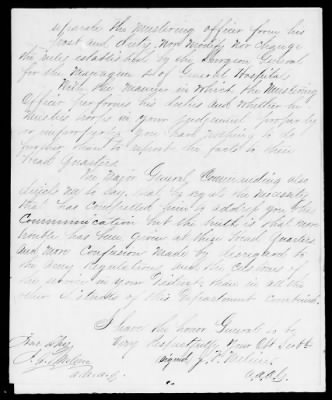 separate the mustering officer from his
post and duty, nor modify nor change
the rules established by the Surgeon General
for the Management of General Hospitals
With the manner in which the Mustering
Officer performs his duties and whether he
musters troops in your judgement properly
or improperly you have nothing to do
further than to report the facts to these
Head Quarters.
The Major General Commanding also
directs me to say, that he regrets the necessity
that has controlled him to address you this
Communication but the truth is that more
trouble has been given at these Head Quarters
and more confusion made by disregard to
the Army regulations and the customs of
the service in your District than in all the
other Districts of this Department combined.
I have the honor General to be
Very Respectfully Your Obt Servt
signed J. F.
A.A.A.G.
True Copy
A.A.A.G.